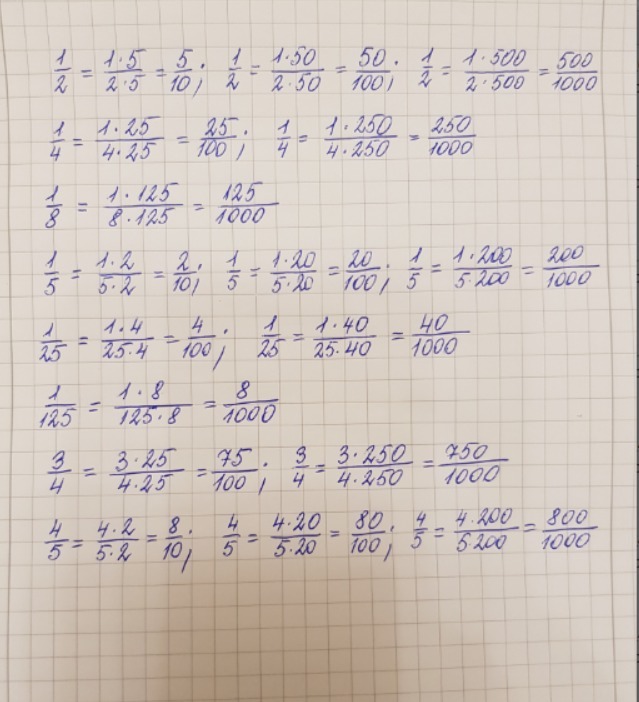 1/2 = 1·5/2·5 = 5/10; 1/2 = 1·50/2·50 = 50/100; 1/2 = 1·500/2·500 = 500/1000
1/4 = 1·25/4·25 = 25/100; 1/4 = 1·250/4·250 = 250/1000
1/8 = 1·125/8·125 = 125/1000
1/5 = 1·2/5·2 = 2/10; 1/5 = 1·20/5·20 = 20/100; 1/5 = 1·200/5·200 = 200/1000
1/25 = 1·4/25·4 = 4/100; 1/25 = 1·40/25·40 = 40/1000
1/125 = 1·8/125·8 = 8/1000
3/4 = 3·25/4·25 = 75/100; 3/4 = 3·250/4·250 = 750/1000
4/5 = 4·2/5·2 = 8/10; 4/5 = 4·20/5·20 = 80/100; 4/5 = 4·200/5·200 = 800/1000